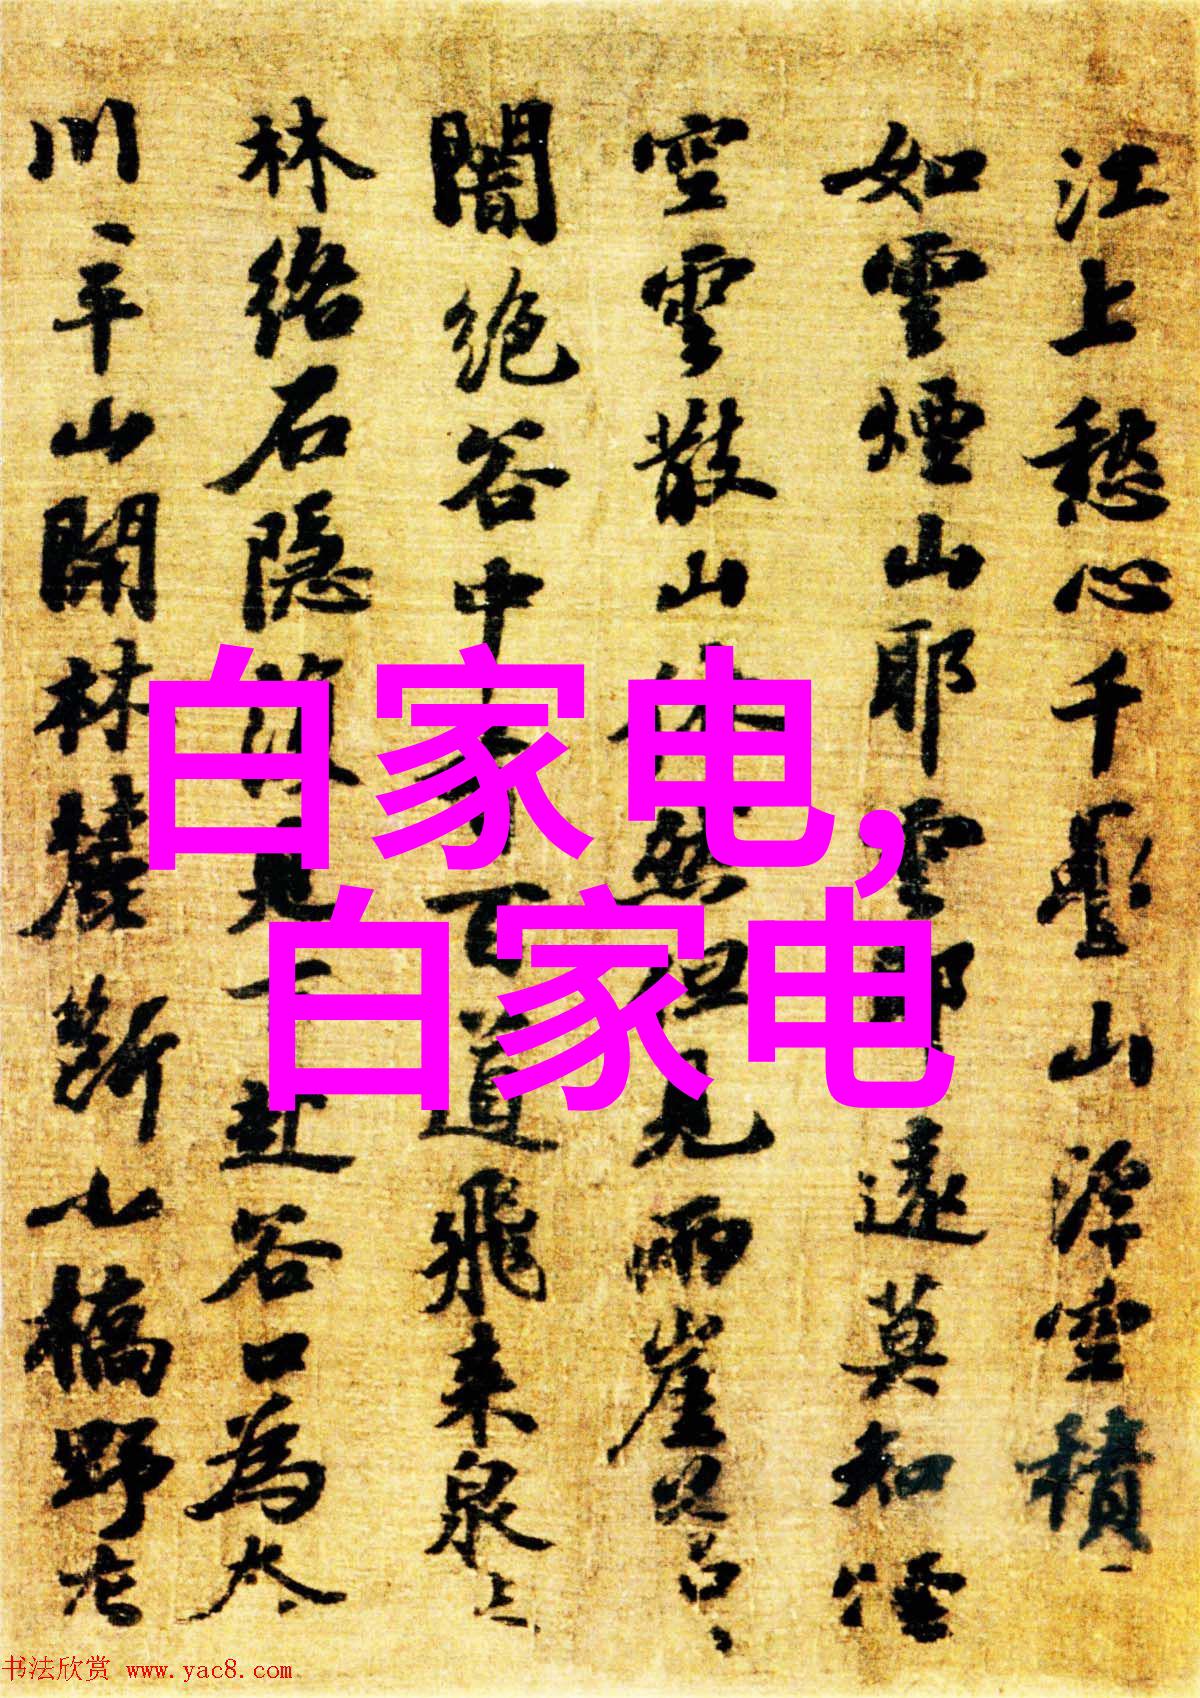 江上愁心千疊山浮空積
如雲煙山耶雲耶遠莫知煙
空雲散山依然但見兩崖
闇絕谷中有百道飛來泉
林絡石隱復見下赴谷口為
川平山開林麓斷小橋野
白家电,
白家电
书法欣赏 www.yac8.com